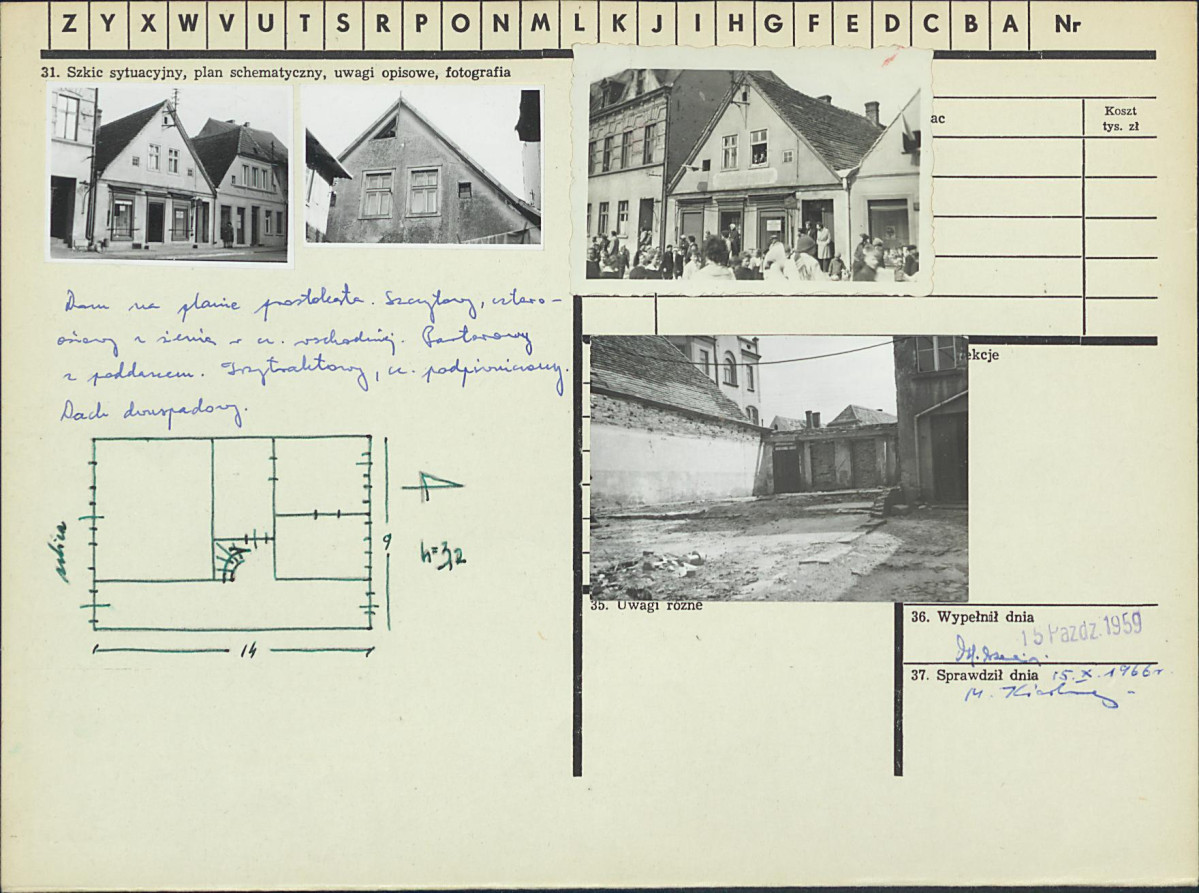 Z Y X W V U T S R P O N M L K J I H G F E D C B A Nr
31. Szkic sytuacyjny, plan schematyczny, uwagi opisowe, fotografia
ac
Koszt
tys. zł
Dom na planie prostokąta. Szczytowy, cztero-
osiowy z sienią w cz. wschodniej. Parterowy
z poddaszem. Trzytraktowy, cz. podpiwniczony.
Dach dwuspadowy.
ulica
9
h=3,2
14
ekcje
35. Uwagi różne
36. Wypełnił dnia
15 Paźdz. 1959
37. Sprawdził dnia 15.X.1966 r.
M.